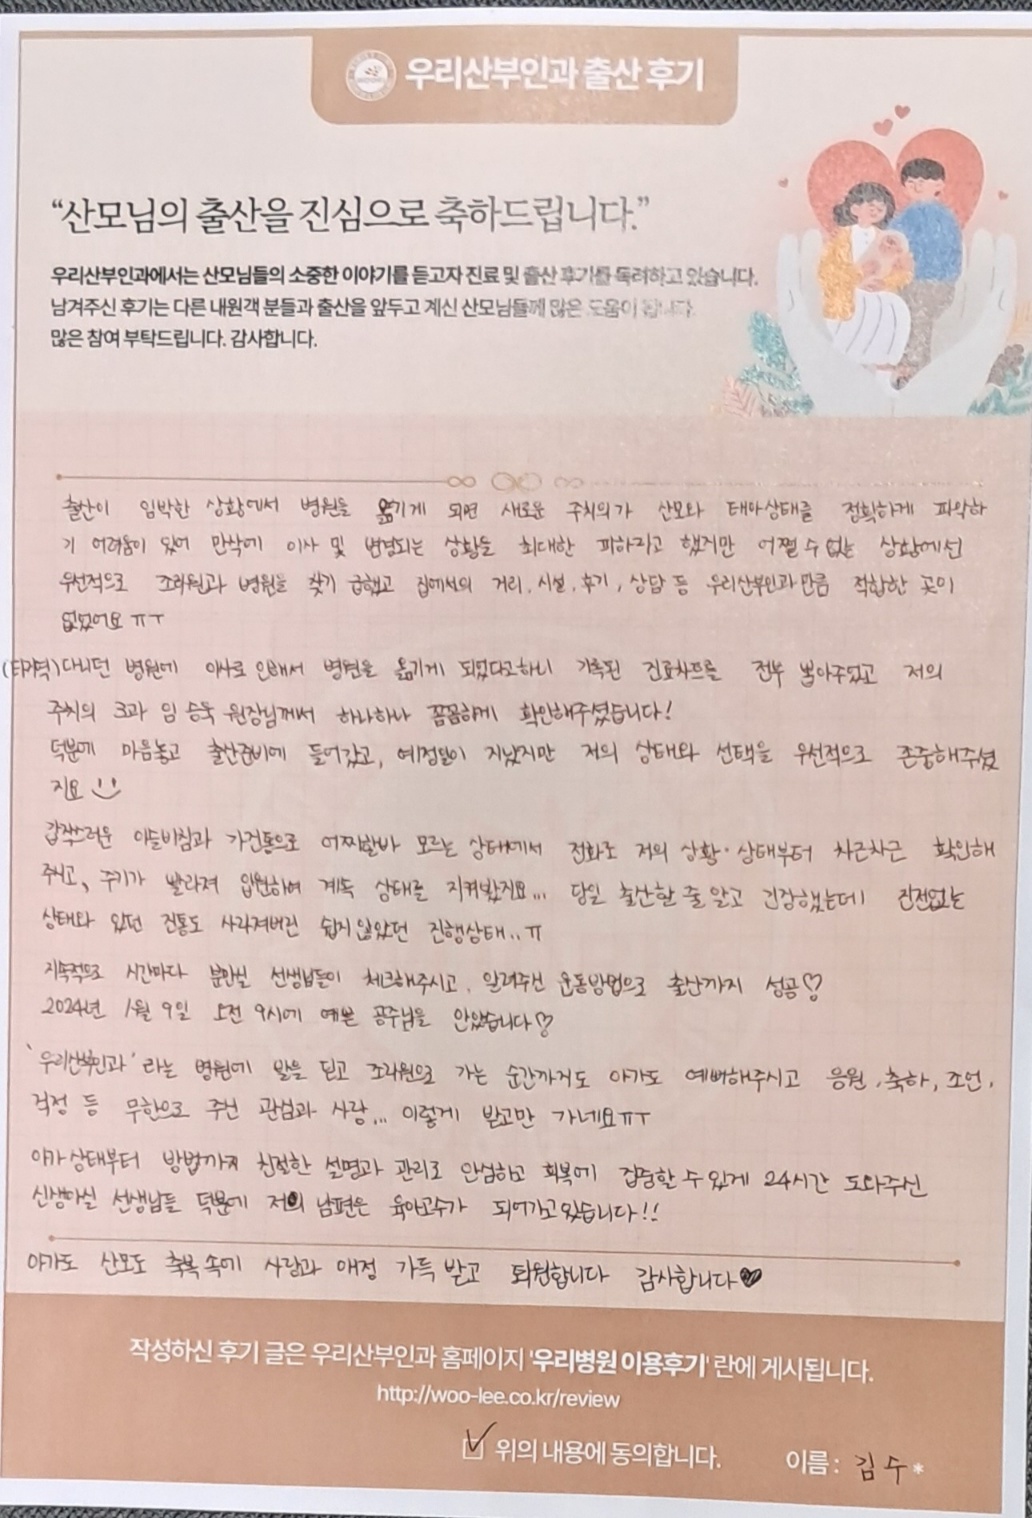 우리산부인과 출산 후기
“산모님의 출산을 진심으로 축하드립니다.”
우리산부인과에서는 산모님들의 소중한 이야기를 듣고자 진료 및 출산 후기를 독려하고 있습니다.
남겨주신 후기는 다른 내원객 분들과 출산을 앞두고 계신 산모님들께 많은 도움이 됩니다.
많은 참여 부탁드립니다. 감사합니다.
출산이 임박한 상황에서 병원을 옮기게 되면 새로운 주치의가 산모와 태아상태를 정확하게 파악하
기 어려움이 있어 만삭에 이사 및 변경되는 상황을 최대한 피하라고 했지만 어쩔 수 없는 상황에선
우선적으로 조리원과 병원을 찾기 급했고 집에서의 거리, 시설, 후기, 상담 등 우리산부인과만큼 적합한 곳이
없었어요 ㅠㅜ
(타지역)다니던 병원에 이사로 인해서 병원을 옮기게 되었다고하니 기록된 진료차트를 전부 뽑아주었고 저의
주치의 3과 임 승욱 원장님께서 하나하나 꼼꼼하게 확인해주셨습니다!
덕분에 마음놓고 출산준비에 들어갔고, 예정일이 지났지만 저의 상태와 선택을 우선적으로 존중해주셨
지요
갑작스러운 이슬비침과 가진통으로 어찌할바 모르는 상태에서 전화로 저의 상황·상태부터 차근차근 확인해
주시고, 주기가 빨라져 입원하여 계속 상태를 지켜봤지요... 당일 출산할 줄 알고 긴장했는데 진전없는
상태와 있던 진통도 사라져버린 쉽지 않았던 진행상태..ㅠ
지속적으로 시간마다 분만실 선생님들이 체크해주시고, 알려주신 운동방법으로 출산까지 성공♡
2024년 1월 9일 오전 9시에 예쁜 공주님을 안았습니다♡
'우리산부인과'라는 병원에 발을 딛고 조리원으로 가는 순간까지도 아가도 예뻐해주시고 응원, 축하, 조언,
걱정 등 무한으로 주신 관심과 사랑... 이렇게 받고만 가네요ㅠㅜ
아가상태부터 방법까지 친절한 설명과 관리로 안심하고 회복에 집중할 수 있게 24시간 도와주신
신생아실 선생님들 덕분에 저와 남편은 육아고수가 되어가고있습니다!!
아가도 산모도 축복속에 사랑과 애정 가득 받고 퇴원합니다 감사합니다♥
작성하신 후기 글은 우리산부인과 홈페이지 '우리병원 이용후기' 란에 게시됩니다.
http://woo-lee.co.kr/review
위의 내용에 동의합니다. 이름 : 김 수 *